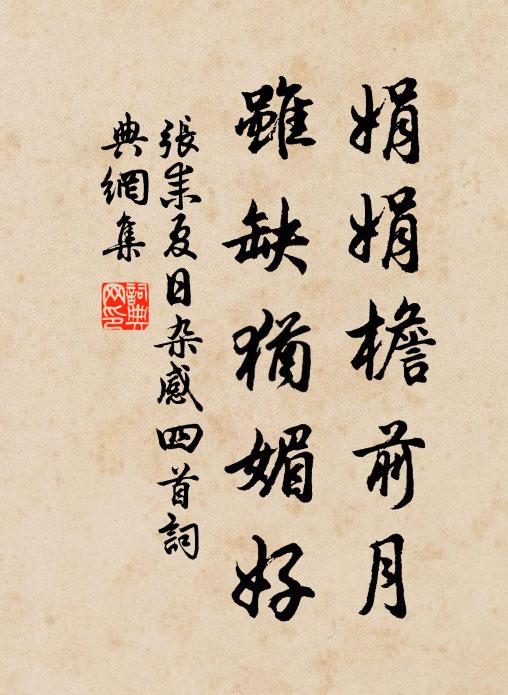 娟娟檐前月
雖缺猶媚好
張耒夏日杂感四首詞
典網集
詞典
网印